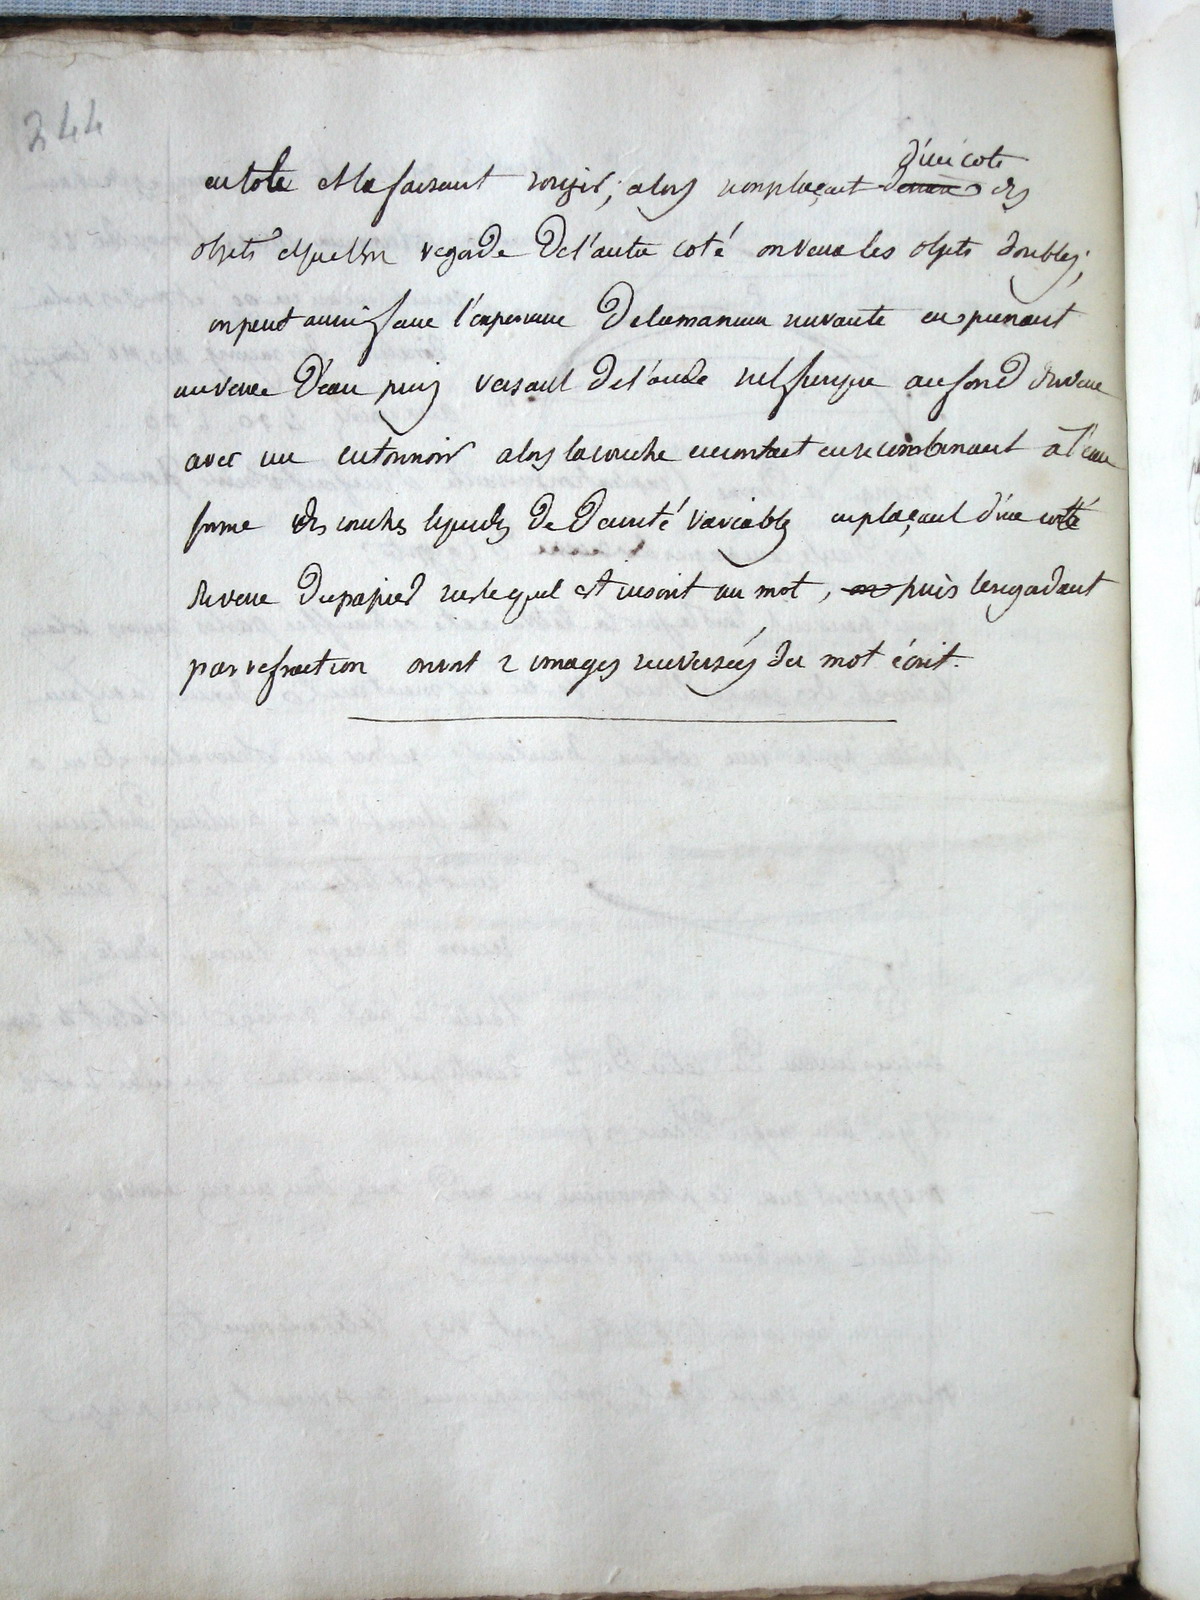 244
d'un coté
en tole et la faisant rougir; alors si on plaçait des
objets et que l'on regarde de l'autre coté on verra les objets doubles;
on peut aussi faire l'experience de la maniere suivante en prenant
un verre d'eau puis versant de l'acide sulfurique au fond du verre
avec un entonnoir alors la couche en contact en se combinant à l'eau
forme des couches liquides de densité variables en plaçant d'un coté
du verre du papier sur lequel est inscrit un mot, puis le regardant
par refraction on voit 2 images renversées du mot écrit.